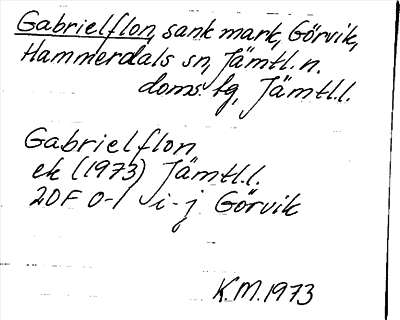 Gabrielflon, sank mark, Görvik,
Hammerdals sn, Jämtl. n.
doms. fg, Jämtl.l.
Gabrielflon
ek (1973) Jämtl.l.
20F 0-1 i-j Görvik
K.M. 1973